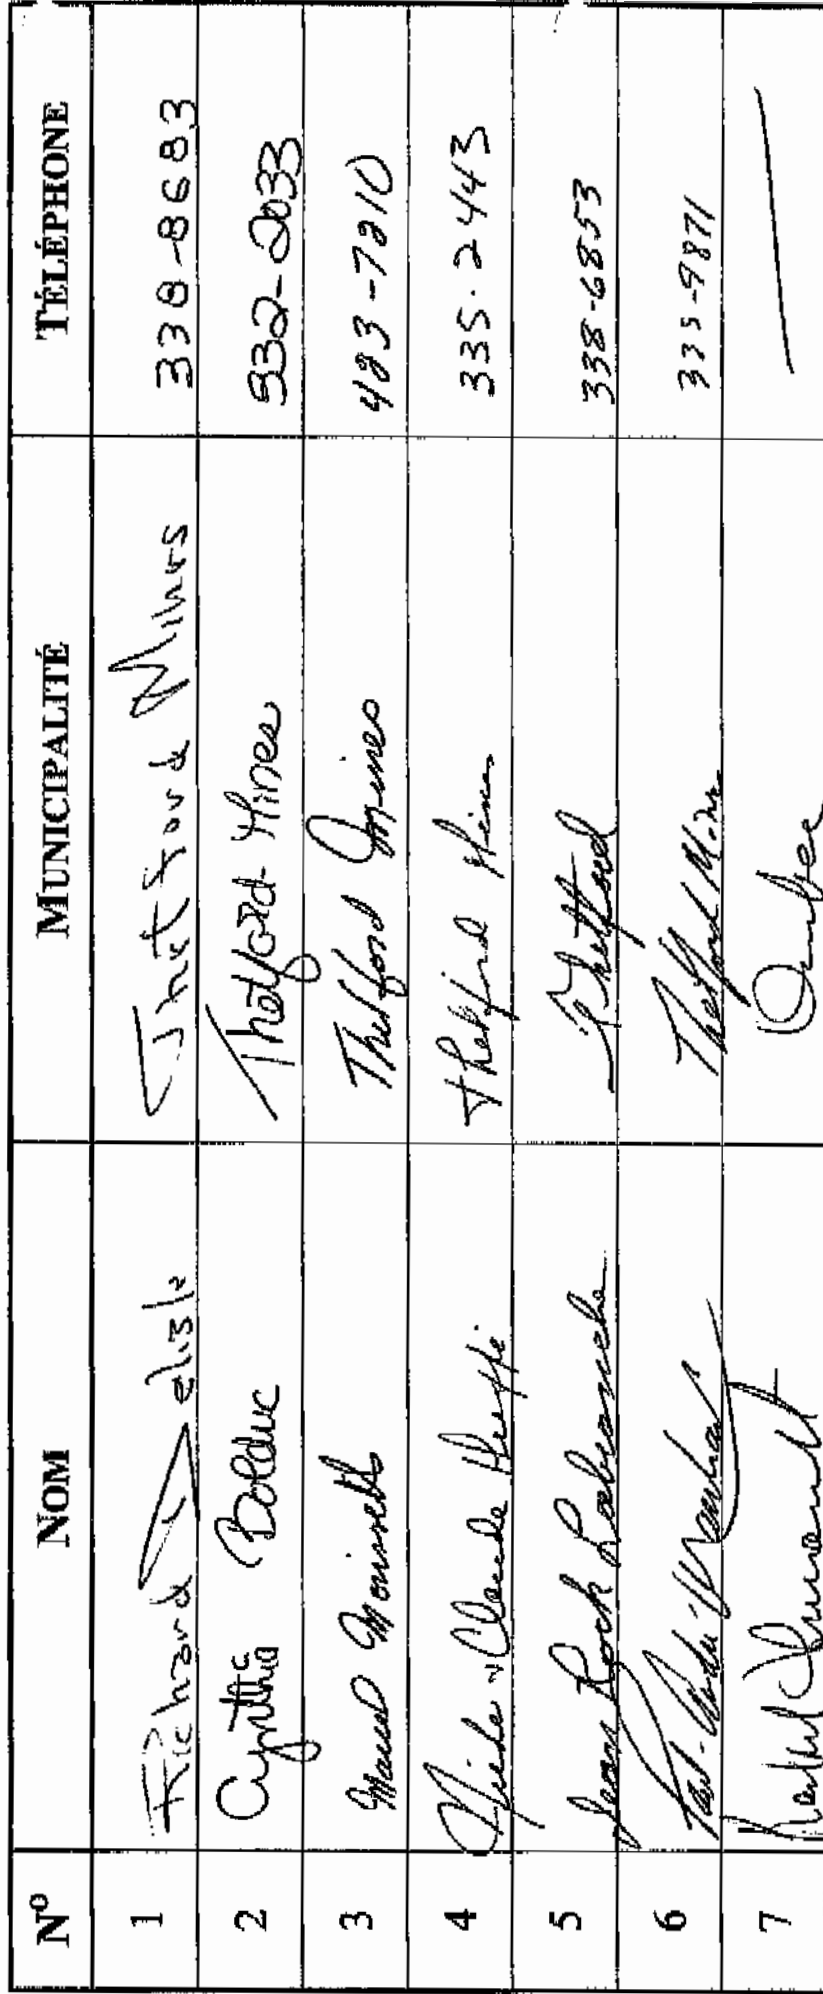 N° NOM MUNICIPALITÉ TÉLÉPHONE
1 Richard Delisle Thetford Mines 338-8683
2 Cynthia Bolduc Thetford-Mines 332-2033
3 Marcel Thetford Mines 423-7210
4 & Claude Thetford Mines 335-2443
5 Jean Roch Labranche Thetford 338-6853
6 Paul-André Thetford Mines 335-9871
7 Québec